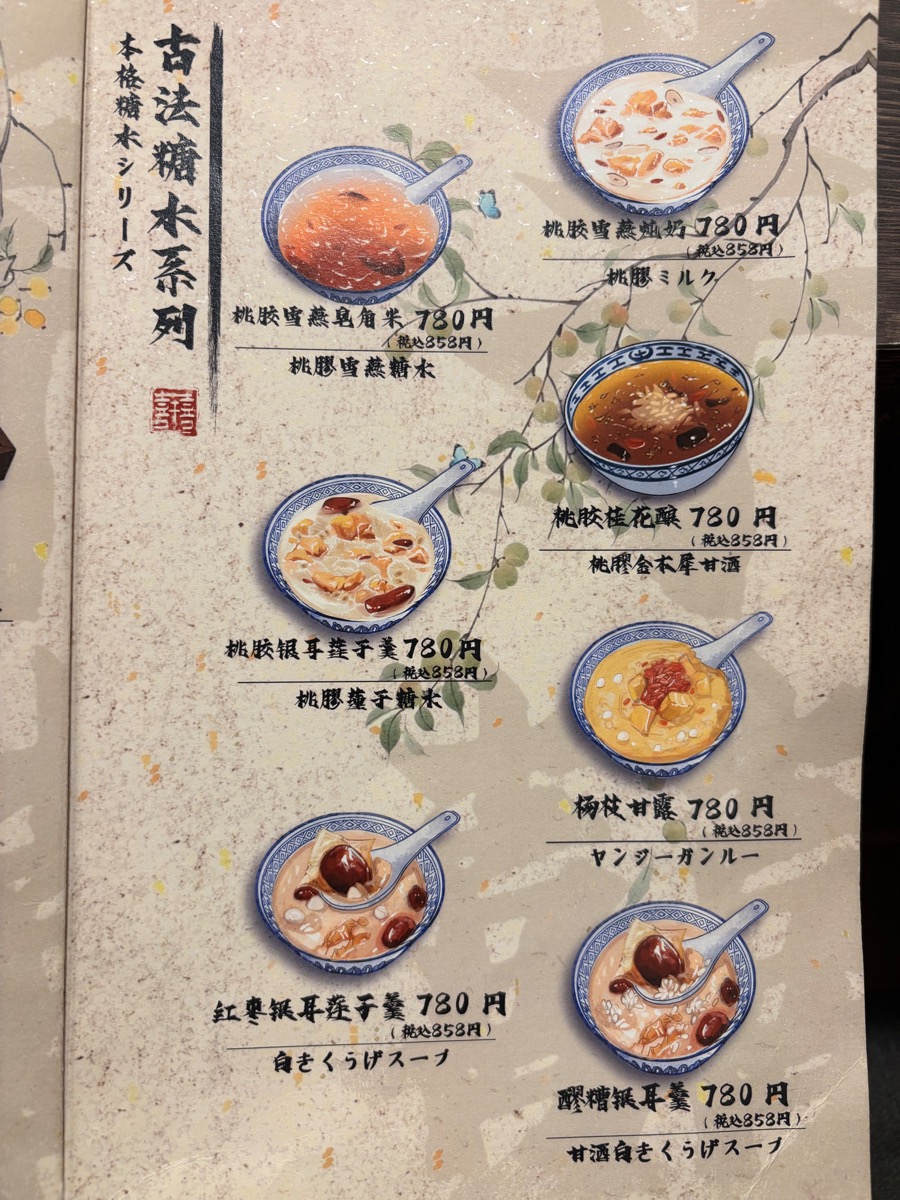 古法糖水系列
本格糖水シリーズ
囍
桃胶雪燕炖奶 780円
(税込858円)
桃膠ミルク
桃胶雪燕皂角米 780円
(税込858円)
桃膠雪燕糖水
桃胶桂花酿 780 円
(税込858円)
桃膠金木犀甘酒
桃胶银耳莲子羹 780円
(税込858円)
桃膠蓮子糖水
杨枝甘露 780 円
(税込858円)
ヤンジーガンルー
红枣银耳莲子羹 780 円
(税込858円)
白きくらげスープ
醪糟银耳羹 780 円
(税込858円)
甘酒白きくらげスープ